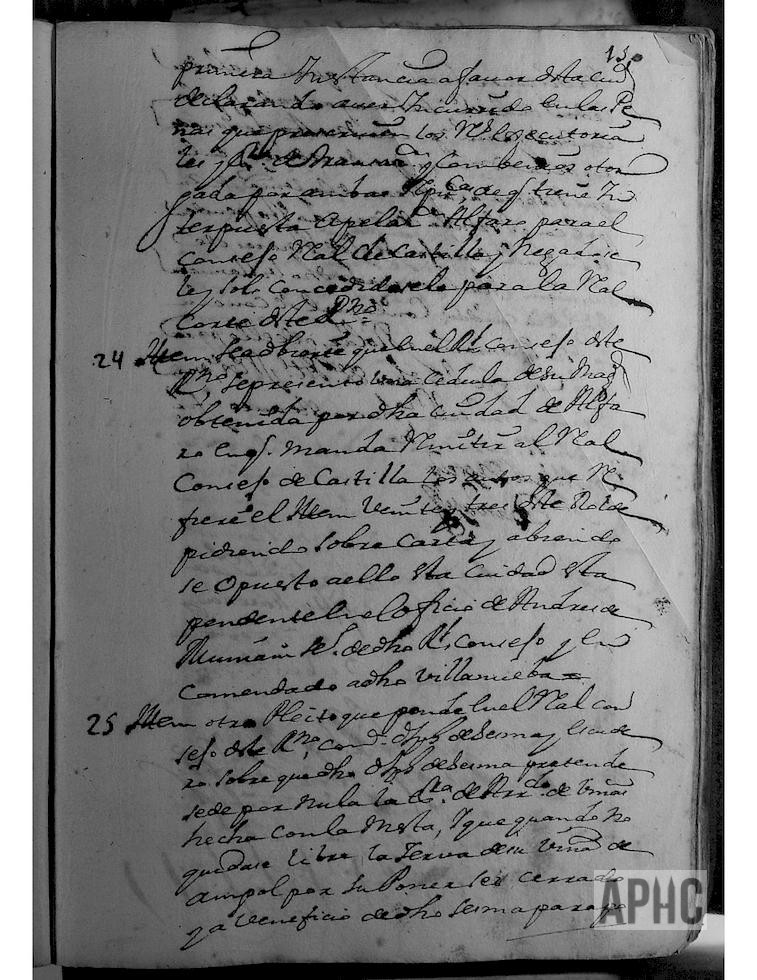 13
primera Instancia a favor desta ciud
declarando aver Incurrido en las Pe
nas que previenen los Rs. executoria
les y de y combenios otor
gada por ambas Repuca. de q tiene In
terpuesta Apelan. Alfaro para el
consejo Real de Castilla y negadose
le y solo concedidosele para la Real
Corte deste Rno.
24 Ittem se adbierte que en el Rl. consejo deste
Rno. se presento una cedula de su Magd
obtenida por dha ciudad de Alfa
ro en q. manda Remitir al Real
Consejo de Castilla los autos que Re
fiere el Ittem veinte y tres deste Rolde
pidiendo sobre Carta y abiendo
se opuesto a ello esta ciudad esta
pendiente en el oficio de Andres de
se. de dho Rl. consejo y en
comendado a dho Villanueba =
25 Ittem otro Pleito que pende en el Real con
sejo deste Rno. con dn. de Sesma y Escude
ro sobre que dho de Sesma pretende
se de por nula la de de viñas
hecha con la Mesta, y que quando no
quedase libre la Yerva de su viña de
ampol por suponer ser cerrado
y a beneficio de dho Sesma para
APHC